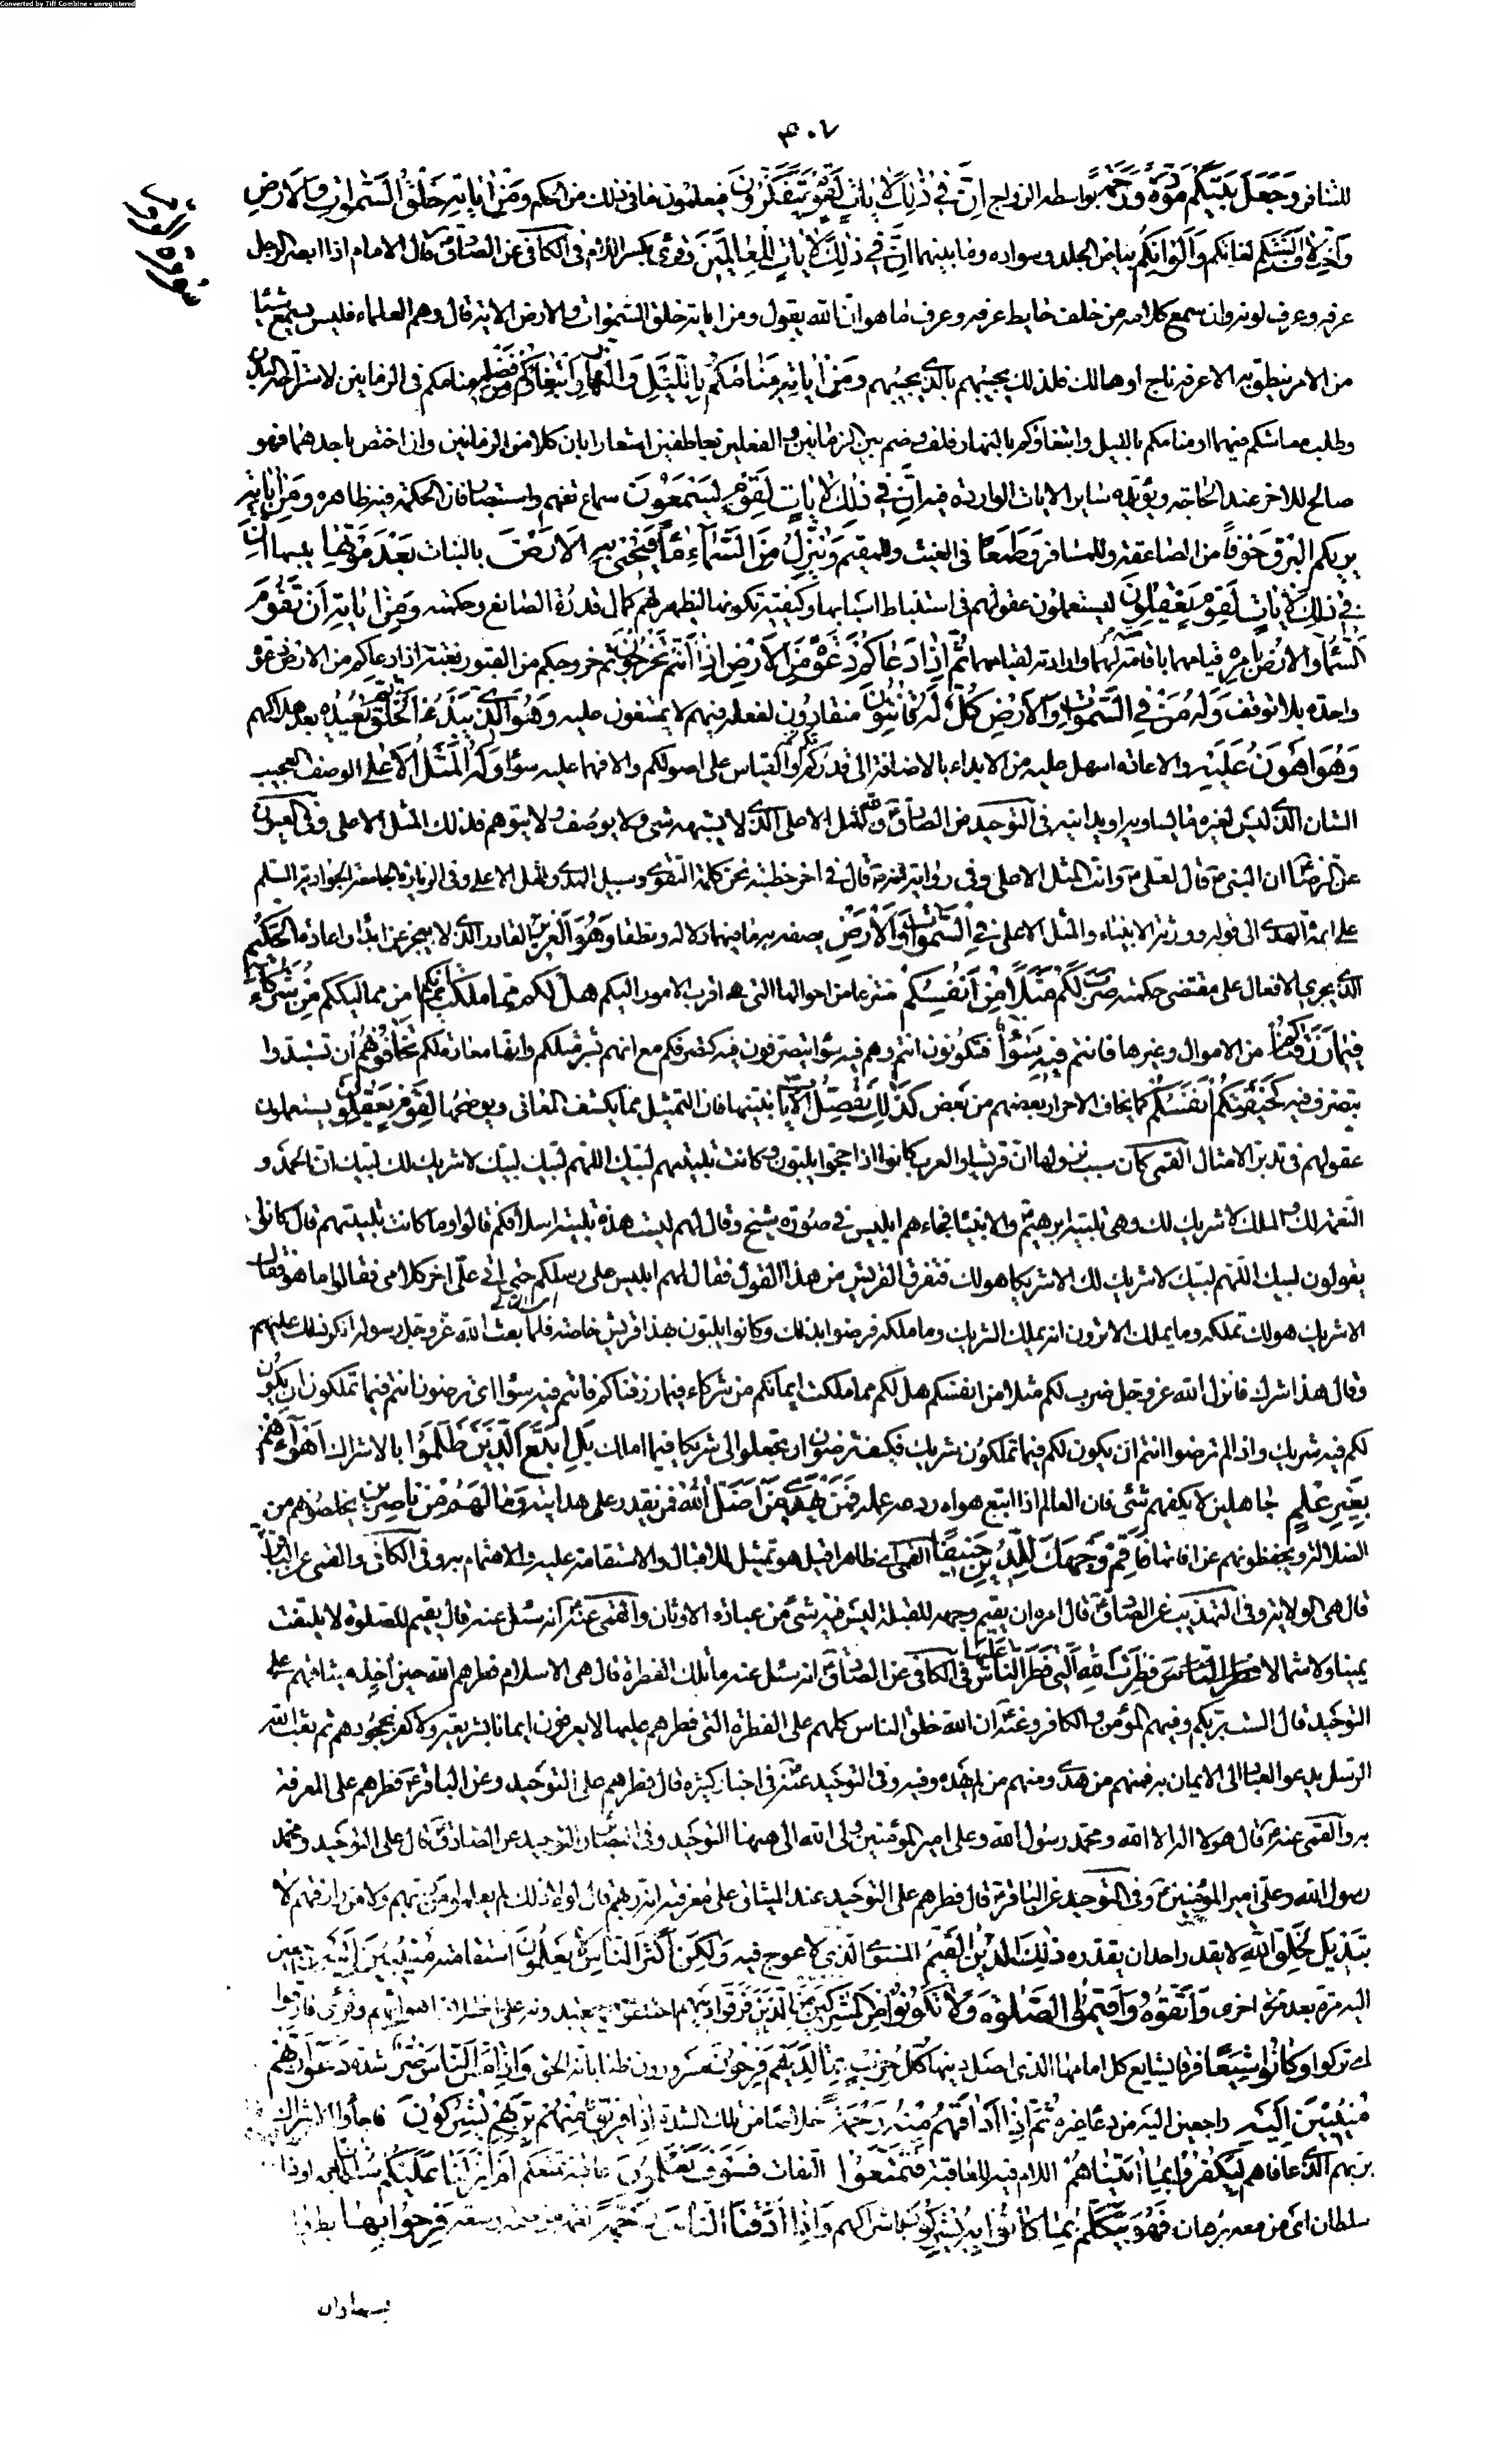 Converted by Tiff Combine - unregistered
٤٠٧
سورة الروم
للتنافر وَجَعَلَ بَيْنَكُمْ مَوَدَّةً وَرَحْمَةً بواسطه الزواج اِنَّ فِي ذٰلِكَ لَاٰيَاتٍ لِقَوْمٍ يَتَفَكَّرُونَ فيعلمون ما فى ذلك من الحكم وَمِنْ اٰيَاتِهِ خَلْقُ السَّمٰوَاتِ وَالْاَرْضِ
وَاخْتِلَافُ اَلْسِنَتِكُمْ لغاتكم وَاَلْوَانِكُمْ بياض الجلد وسواده وما بينهما اِنَّ فِي ذٰلِكَ لَاٰيَاتٍ لِلْعَالِمِينَ وقرئ بكسر اللام فى الكافى عن الصادق ع قال الامام اذا ابصر الرجل
عرفه وعرف لونه وان سمع كلامه من خلف حايط عرفه وعرف ما هو ان الله يقول ومن اياته خلق السموات والارض الاية قال وهم العلماء فليس يسمع شيئا
من الامر ينطق به الا عرفه ناج او هالك فلذلك يجيبهم بالذى يجيبهم وَمِنْ اٰيَاتِهِ مَنَامُكُمْ بِاللَّيْلِ وَالنَّهَارِ وَابْتِغَاؤُكُمْ مِنْ فَضْلِهِ منامكم فى الزمانين لاستراحة البدن
وطلب معاشكم فيهما او منامكم بالليل وابتغاؤكم بالنهار فلف وضم بين الزمانين والفعلين بعاطفين اشعارا بان كلا من الزمانين وان اختص باحدهما فهو
صالح للاخر عند الحاجة ويؤيده ساير الايات الواردة فيه اِنَّ فِي ذٰلِكَ لَاٰيَاتٍ لِقَوْمٍ يَسْمَعُونَ سماع تفهم واستبصار فان الحكمة فيه ظاهره وَمِنْ اٰيَاتِهِ
يُرِيكُمُ الْبَرْقَ خَوْفًا من الصاعقة وللمسافر وَطَمَعًا فى الغيث وللمقيم وَيُنَزِّلُ مِنَ السَّمَاءِ مَاءً فَيُحْيِي بِهِ الْاَرْضَ بالنبات بَعْدَ مَوْتِهَا يبسها اِنَّ
فِي ذٰلِكَ لَاٰيَاتٍ لِقَوْمٍ يَعْقِلُونَ يستعملون عقولهم فى استنباط اسبابها وكيفية تكونها ليظهر لهم كمال قدرة الصانع وحكمته وَمِنْ اٰيَاتِهِ اَنْ تَقُومَ
السَّمَاءُ وَالْاَرْضُ بِاَمْرِهِ قيامهما باقامته لهما وارادته لقيامهما ثُمَّ اِذَا دَعَاكُمْ دَعْوَةً مِنَ الْاَرْضِ اِذَا اَنْتُمْ تَخْرُجُونَ ثم خروجكم من القبور بغتة اذا دعاكم من الارض دعوة
واحدة بلا توقف وَلَهُ مَنْ فِي السَّمٰوَاتِ وَالْاَرْضِ كُلٌّ لَهُ قَانِتُونَ منقادون لفعله فيهم لا يمتنعون عليه وَهُوَ الَّذِي يَبْدَؤُا الْخَلْقَ ثُمَّ يُعِيدُهُ بعد هلاكهم
وَهُوَ اَهْوَنُ عَلَيْهِ والاعادة اسهل عليه من الابداء بالاضافة الى قدركم والقياس على اصولكم والا فهما عليه سواء وَلَهُ الْمَثَلُ الْاَعْلٰى الوصف العجيب
الشان الذى ليس لغيره ما يساويه او يدانيه فى التوحيد عن الصادق ع ولله المثل الاعلى الذى لا يشبهه شئ ولا يوصف ولا يتوهم فذلك المثل الاعلى وفى العيون
عن الرضا ع ان النبى ص قال لعلى ع وانت المثل الاعلى وفى رواية انه ص قال فى اخر خطبته نحن كلمة التقوى وسبيل الهدى والمثل الاعلى وفى الزيارة الجامعة الجوادية السلم
على ائمة الهدى الى قوله وورثة الانبياء والمثل الاعلى فِي السَّمٰوَاتِ وَالْاَرْضِ يصفه به ما فيهما دلالة ونطقا وَهُوَ الْعَزِيزُ القادر الذى لا يعجز عن ابداء واعادة الْحَكِيمُ
الذى يجرى الافعال على مقتضى حكمته ضَرَبَ لَكُمْ مَثَلًا مِنْ اَنْفُسِكُمْ منتزعا من احوالها التى هى اقرب الامور اليكم هَلْ لَكُمْ مِمَّا مَلَكَتْ اَيْمَانُكُمْ من مماليككم مِنْ شُرَكَاءَ
فِيمَا رَزَقْنَاكُمْ من الاموال وغيرها فَاَنْتُمْ فِيهِ سَوَاءٌ فتكونون انتم وهم فيه سواء يتصرفون فيه كتصرفكم مع انهم بشر مثلكم وانها معارة لكم تَخَافُونَهُمْ ان تستبدوا
بتصرف فيه كَخِيفَتِكُمْ اَنْفُسَكُمْ كما يخاف الاحرار بعضهم من بعض كَذٰلِكَ نُفَصِّلُ الْاٰيَاتِ نبينها فان التمثيل مما يكشف المعانى ويوضحها لِقَوْمٍ يَعْقِلُونَ يستعملون
عقولهم فى تدبر الامثال القمى كان سبب نزولها ان قريشا والعرب كانوا اذا حجوا يلبون وكانت تلبيتهم لبيك اللهم لبيك لبيك لا شريك لك لبيك ان الحمد و
النعمة لك والملك لا شريك لك وهى تلبية ابرهيم ع والانبياء فجاءهم ابليس فى صورة شيخ وقال لهم ليست هذه تلبية اسلافكم قالوا وما كانت تلبيتهم قال كانوا
يقولون لبيك اللهم لبيك لا شريك لك الا شريكا هو لك فتفرق القريش من هذا القول فقال لهم ابليس على رسلكم حتى اتى على اخر كلامى فقالوا ما هو فقال
الا شريك هو لك تملكه وما يملك الا ترون انه يملك الشريك وما ملكه فرضوا بذلك وكانوا يلبون بهذا قريش خاصة فلما بعث الله عز وجل رسوله انكر ذلك عليهم
وقال هذا شرك فانزل الله عز وجل ضرب لكم مثلا من انفسكم هل لكم مما ملكت ايمانكم من شركاء فيما رزقناكم فانتم فيه سواء اى ترضون انتم فيما تملكون ان يكون
لكم فيه شريك واذا لم ترضوا انتم ان يكون لكم فيما تملكون شريك فكيف ترضون ان تجعلوا لى شريكا فيما املك بَلِ اتَّبَعَ الَّذِينَ ظَلَمُوا بالاشراك اَهْوَاءَهُمْ
بِغَيْرِ عِلْمٍ جاهلين لا يكفهم شئ فان العالم اذا اتبع هواه ردعه علمه فَمَنْ يَهْدِي مَنْ اَضَلَّ اللهُ فمن يقدر على هدايته وَمَا لَهُمْ مِنْ نَاصِرِينَ يخلصونهم من
الضلالة ويحفظونهم عن افاتها فَاَقِمْ وَجْهَكَ لِلدِّينِ حَنِيفًا القمى اى طاهرا قيل هو تمثيل للاقبال والاستقامة عليه والاهتمام به وفى الكافى والقمى عن الباقر ع
قال هى الولاية وفى التهذيب عن الصادق ع قال امره ان يقيم وجهه للقبلة ليس فيه شئ من عبادة الاوثان والقمى عنه ع انه سئل عنه قال يقيم للصلوة لا يلتفت
يمينا ولا شمالا فِطْرَتَ اللهِ الَّتِي فَطَرَ النَّاسَ عَلَيْهَا فى الكافى عن الصادق ع انه سئل عنه ما تلك الفطرة قال هى الاسلام فطرهم الله حين اخذ ميثاقهم على
التوحيد قال الست بربكم وفيهم المؤمن والكافر وعنه ع ان الله خلق الناس كلهم على الفطرة التى فطرهم عليها لا يعرفون ايمانا بشريعة ولا كفرا بجحود ثم بعث الله
الرسل يدعو العباد الى الايمان به فمنهم من هدى ومنهم من لم يهده وفيه وفى التوحيد عنه ع فى اخبار كثيرة قال فطرهم على التوحيد وعن الباقر ع فطرهم على المعرفة
به والقمى عنه ع قال هو لا اله الا الله ومحمد رسول الله وعلى امير المؤمنين ولى الله الى ههنا التوحيد وفى البصائر والتوحيد عن الصادق ع قال على التوحيد ومحمد
رسول الله وعلى امير المؤمنين ع وفى التوحيد عن الباقر ع قال فطرهم على التوحيد عند الميثاق على معرفته انه ربهم قال لولا ذلك لم يعلموا من ربهم ولا من رازقهم لَا
تَبْدِيلَ لِخَلْقِ اللهِ لا يقدر احد ان يغيره ذٰلِكَ الدِّينُ الْقَيِّمُ المستوى الذى لا عوج فيه وَلٰكِنَّ اَكْثَرَ النَّاسِ لَا يَعْلَمُونَ استقامته مُنِيبِينَ اِلَيْهِ راجعين
اليه مرة بعد اخرى وَاتَّقُوهُ وَاَقِيمُوا الصَّلٰوةَ وَلَا تَكُونُوا مِنَ الْمُشْرِكِينَ مِنَ الَّذِينَ فَرَّقُوا دِينَهُمْ اختلفوا فيما يعبدونه على اختلاف اهوائهم وقرئ فارقوا
اى تركوا وَكَانُوا شِيَعًا فرقا يشايع كل امامها الذى اضل دينها كُلُّ حِزْبٍ بِمَا لَدَيْهِمْ فَرِحُونَ مسرورون ظنا بانه الحق وَاِذَا مَسَّ النَّاسَ ضُرٌّ شدة دَعَوْا رَبَّهُمْ
مُنِيبِينَ اِلَيْهِ راجعين اليه من دعاء غيره ثُمَّ اِذَا اَذَاقَهُمْ مِنْهُ رَحْمَةً خلاصا من تلك الشدة اِذَا فَرِيقٌ مِنْهُمْ بِرَبِّهِمْ يُشْرِكُونَ فاجأوا بالاشراك
بربهم الذى عافاهم لِيَكْفُرُوا بِمَا اٰتَيْنَاهُمْ اللام فيه للعاقبة فَتَمَتَّعُوا التفات فَسَوْفَ تَعْلَمُونَ عاقبة تمتعكم اَمْ اَنْزَلْنَا عَلَيْهِمْ سُلْطَانًا حجة او ذا
سلطان اى من معه برهان فَهُوَ يَتَكَلَّمُ بِمَا كَانُوا بِهِ يُشْرِكُونَ باشراكهم وَاِذَا اَذَقْنَا النَّاسَ رَحْمَةً نعمة من صحة وسعة فَرِحُوا بِهَا بطروا